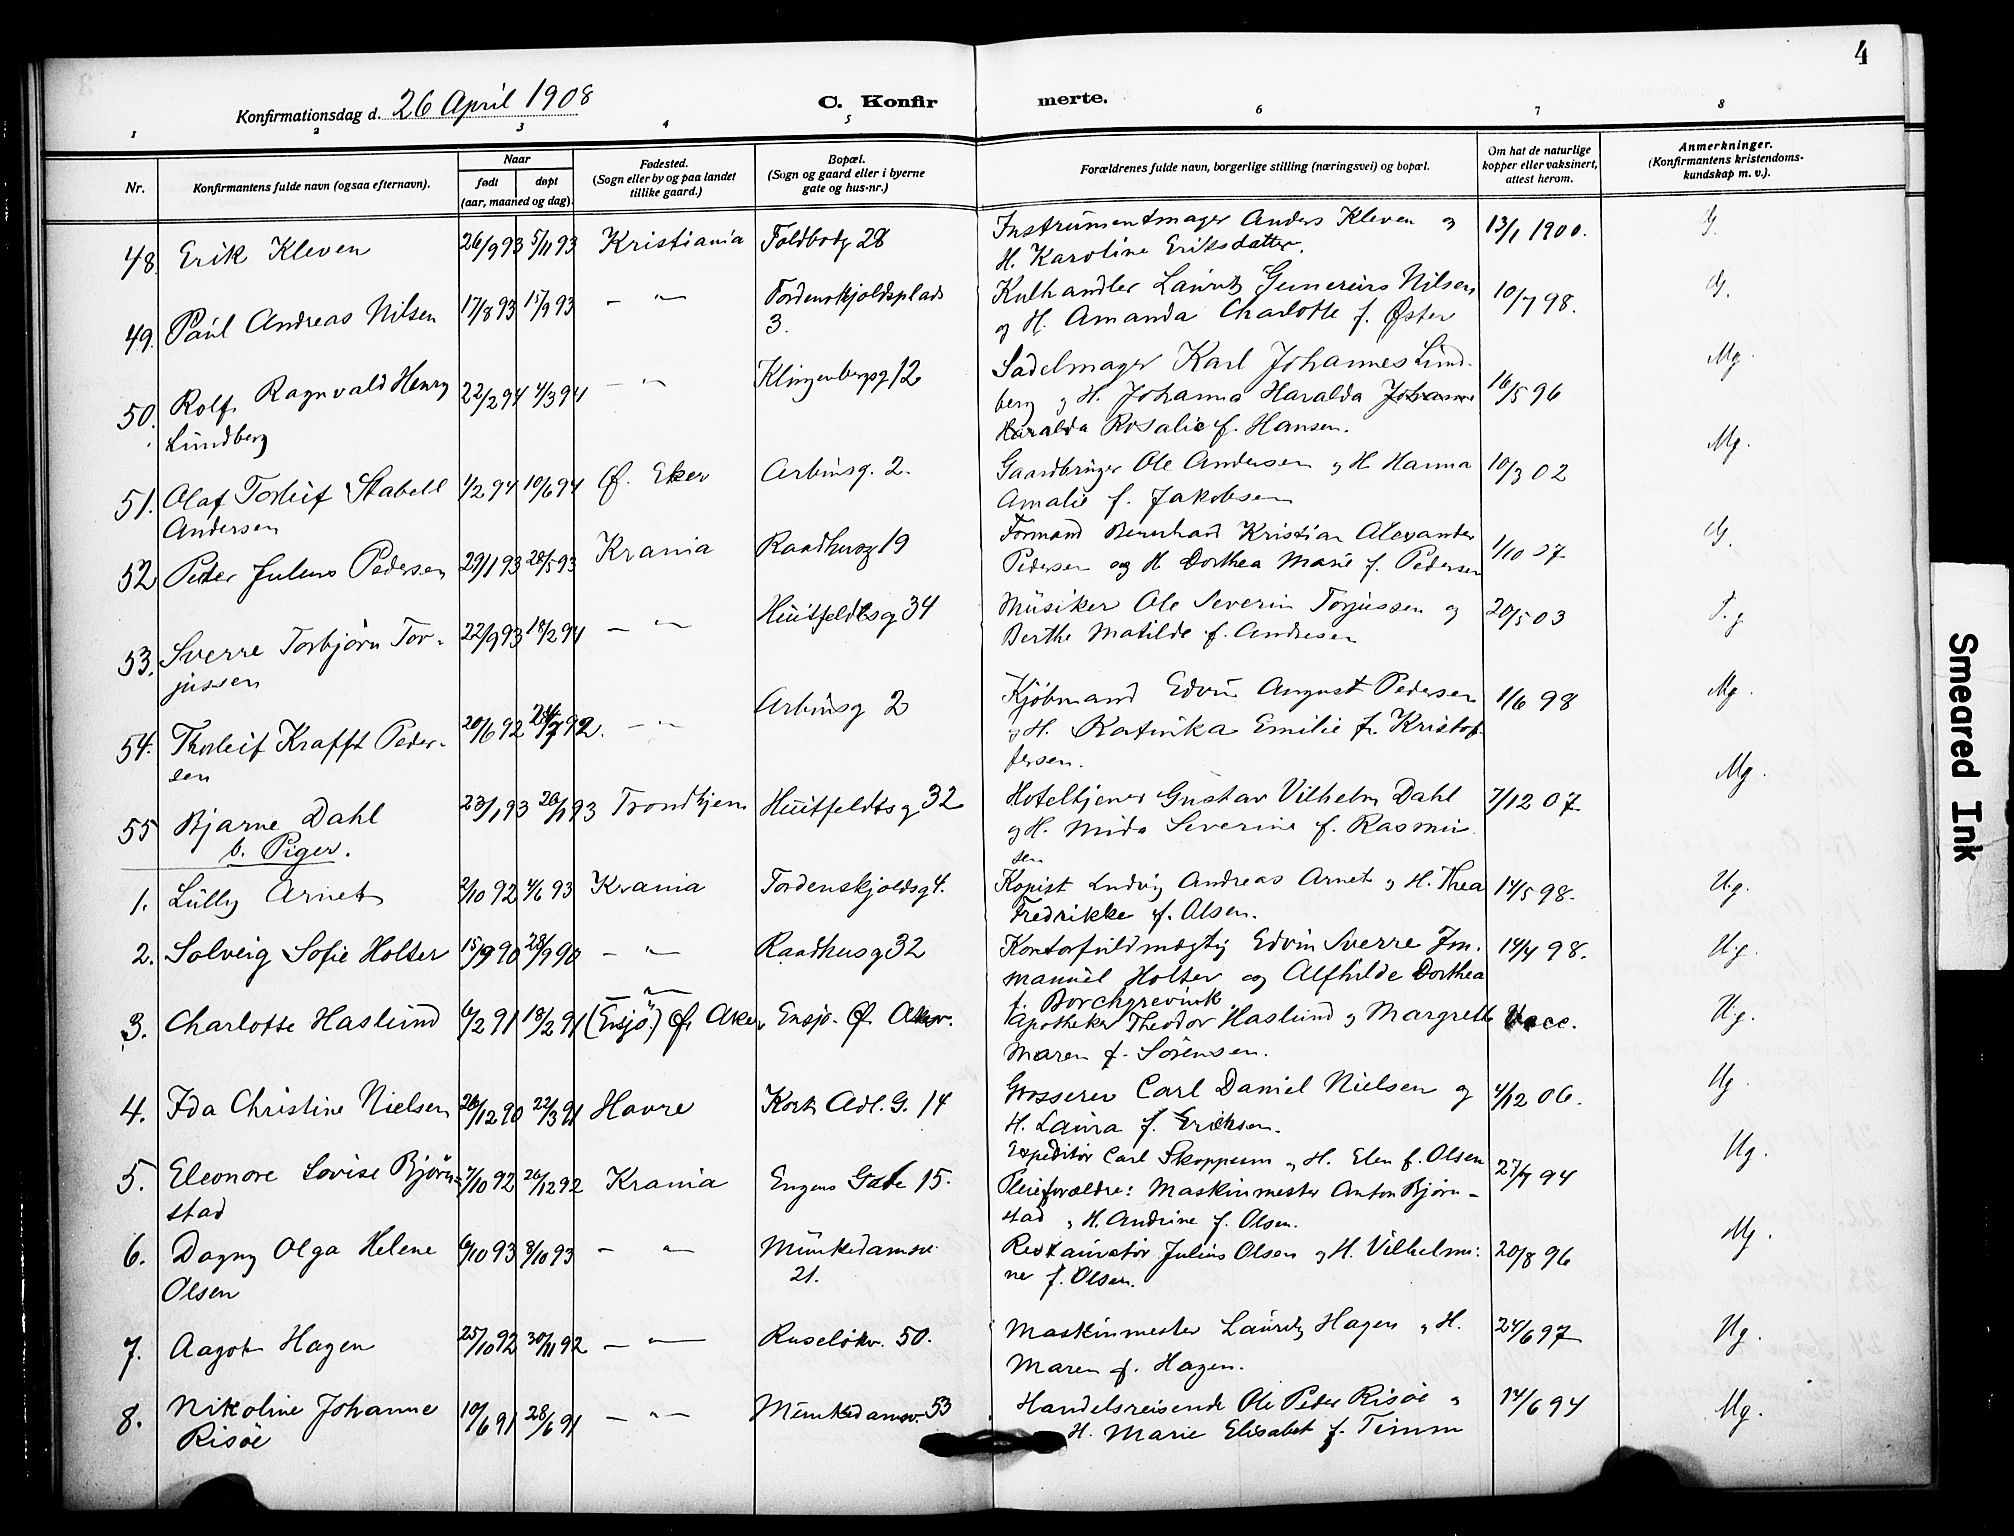 4
Konfirmationsdag d. 26 April 1908
C. Konfir merte.
1 2 3 4 5 6 7 8
Nr.
Konfirmantens fulde navn (ogsaa efternavn).
Naar
født døpt
(aar, maaned og dag).
Fødested.
(Sogn eller by og paa landet
tillike gaard.)
Bopæl.
(Sogn og gaard eller i byerne
gate og hus-nr.)
Forældrenes fulde navn, borgerlige stilling (næringsvei) og bopæl.
Om hat de naturlige
kopper eller vaksinert,
attest herom.
Anmerkninger.
(Konfirmantens kristendoms-
kundskap m. v.).
48. Erik Kleven 26/9 93 5/11 93 Kristiania Toldbodg 28 Instrumentmager Anders Kleven og 13/1 1900. G.
H. Karoline Eriksdatter.
49. Paul Andreas Nilsen 17/8 93 15/9 93 — " — Tordenskjoldsplads Kulhandler Lauritz Gunerius Nilsen 10/7 98. G.
3. og H. Amanda Charlotte f. Øster
50. Rolf Ragnvald Henry 22/2 94 4/3 94 — " — Klingenbergg 12 Sadelmager Karl Johannes Lund- 16/5 96 Mg.
Lundberg berg og H. Johanna Haralda Johanne
Haralda Rosalie f. Hansen.
51. Olaf Torleif Stabell 1/2 94 10/6 94 Ø. Eker Arbinsg. 2. Gaardbruger Ole Andersen og H. Hanna 10/3 02 Mg.
Andersen Amalie f. Jakobsen
52 Peder Julius Pedersen 29/1 93 28/5 93 Krania Raadhusg 19 Formand Bernhard Kristian Alexander 1/10 07 G.
Pedersen og H. Dorthea Marie f. Pedersen
53. Sverre Torbjörn Tor- 22/9 93 18/2 94 — " — Huitfeldtsg 34 Musiker Ole Severin Torjussen og 20/5 03 T.g
jussen Berthe Matilde f. Andresen
54. Thorleif Krafft Peder- 20/6 92 24/7 92. — " — Arbinsg 2 Kjøbmand Edvin August Pedersen 1/6 98 Mg.
sen og H. Katinka Emilie f. Kristof-
fersen.
55 Bjarne Dahl 23/1 93 26/1 93 Trondhjem Huitfeldtsg 32 Hoteltjener Gustav Vilhelm Dahl 7/12 07 Mg.
og H. Mida Severine f. Rasmus-
sen
b. Piger.
1. Lully Arnet 2/10 92 4/6 93 Krania Tordenskjoldsg 4. Kopist Ludvig Andreas Arnet og H. Thea 14/5 98. Ug.
Fredrikke f. Olsen.
2. Solveig Sofie Holter 15/9 90 28/9 90 — " — Raadhusg 32 Kontorfuldmægtig Edvin Sverre Im- 14/4 98. Ug.
manuel Holter og Alfhilde Dorthea
f. Borchgrevink.
3. Charlotte Haslund 6/2 91 18/2 91 (Ensjö) Ø. Aker Ensjø. Ø. Aker. Apotheker Theodor Haslund og Margrethe Vacc. Ug.
Maren f. Sörensen.
4. Ida Christine Nielsen 26/12 90 22/3 91 Havre Kort Adl. G. 14 Grosserer Carl Daniel Nielsen og 4/12 06. Ug.
H. Laura f. Eriksen.
5. Eleonore Lovise Björn- 7/10 92 26/12 92 Krania Engens Gate 15. Expeditör Carl Skoppum og H. Elen f. Olsen 27/7 94 Ug.
stad Pleieforældre: Maskinmester Anton Bjørn-
stad og H. Andrine f. Olsen.
6. Dagny Olga Helene 6/10 93 8/10 93 — " — Munkedamsv. Restauratör Julius Olsen og H. Vilhelmi- 20/8 96 Mg.
Olsen 21. ne f. Olsen.
7. Aagot Hagen 25/10 92 30/11 92 — " — Ruseløkv. 50. Maskinmester Lauritz Hagen og H. 24/6 97 Ug.
Maren f. Hagen.
8. Nikoline Johanne 10/6 91 28/6 91 — " — Munkedamsv. 53 Handelsreisende Ole Peder Risöe og 14/6 94 Mg.
Risöe H. Marie Elisabet f. Timm
Smeared Ink